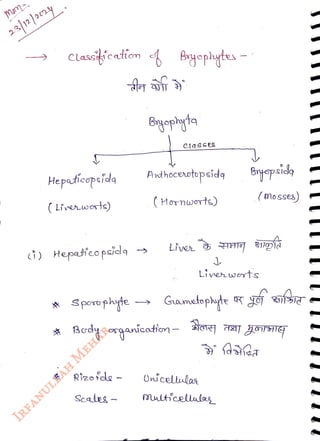 Mon-
23/12/2024
→ Classification of Bryophytes -
तीन वर्गों में
Bryophyta
Classes
Hepaticopsida Anthocerotopsida Bryopsida
(Liverworts) (Hornworts) (mosses)
(i) Hepaticopsida → Liver के समान आकृति
↓
Liverworts
* Sporophyte → Gametophyte पर पूर्ण आश्रित
* Body organication - थैलस तथा मूलाभास
में विभेदित
* Rizoids - Unicellular
Scales - multicellular
IRFANULLAH MEHAR